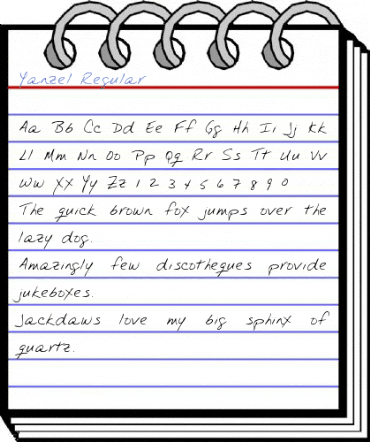 Yanzel Regular
Aa Bb Cc Dd Ee Ff Gg Hh Ii Jj Kk
Ll Mm Nn Oo Pp Qq Rr Ss Tt Uu Vv
Ww Xx Yy Zz 1 2 3 4 5 6 7 8 9 0
The quick brown fox jumps over the
lazy dog.
Amazingly few discotheques provide
jukeboxes.
Jackdaws love my big sphinx of
quartz.